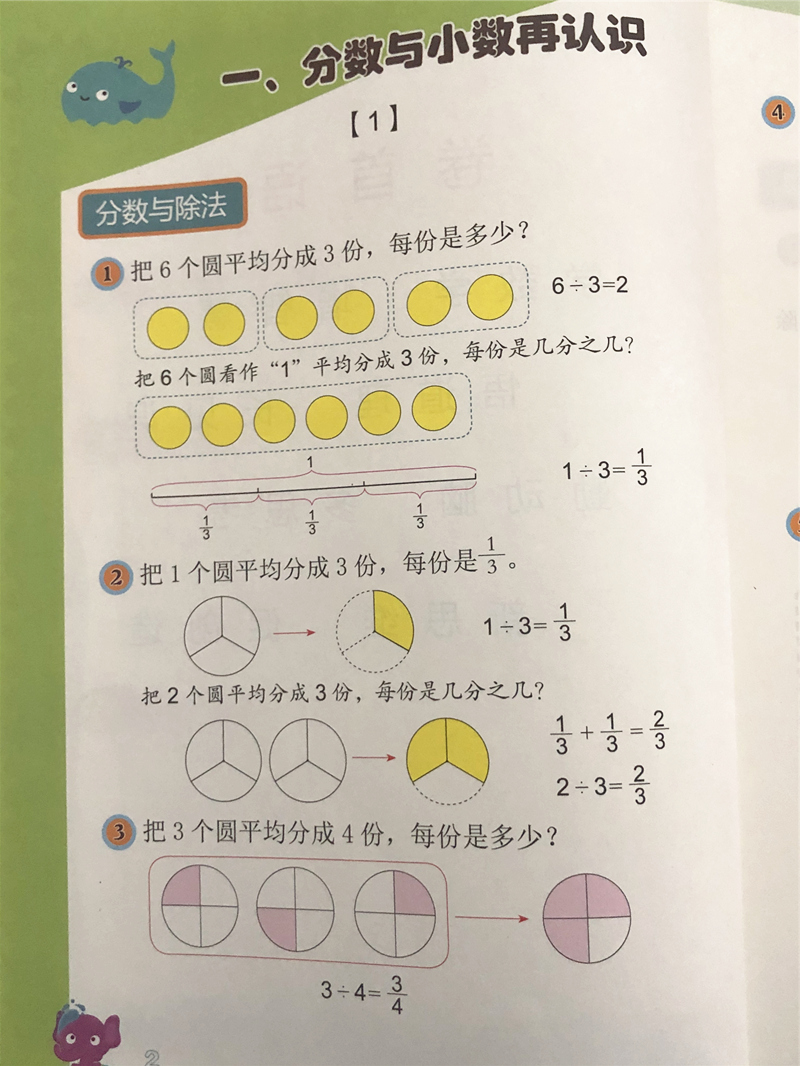 一、分数与小数再认识
【1】
分数与除法
1 把 6 个圆平均分成 3 份，每份是多少？
6÷3=2
把 6 个圆看作“1”平均分成 3 份，每份是几分之几？
1
1÷3=1/3
1/3 1/3 1/3
2 把 1 个圆平均分成 3 份，每份是1/3。
1÷3=1/3
把 2 个圆平均分成 3 份，每份是几分之几？
1/3+1/3=2/3
2÷3=2/3
3 把 3 个圆平均分成 4 份，每份是多少？
3÷4=3/4
2
4